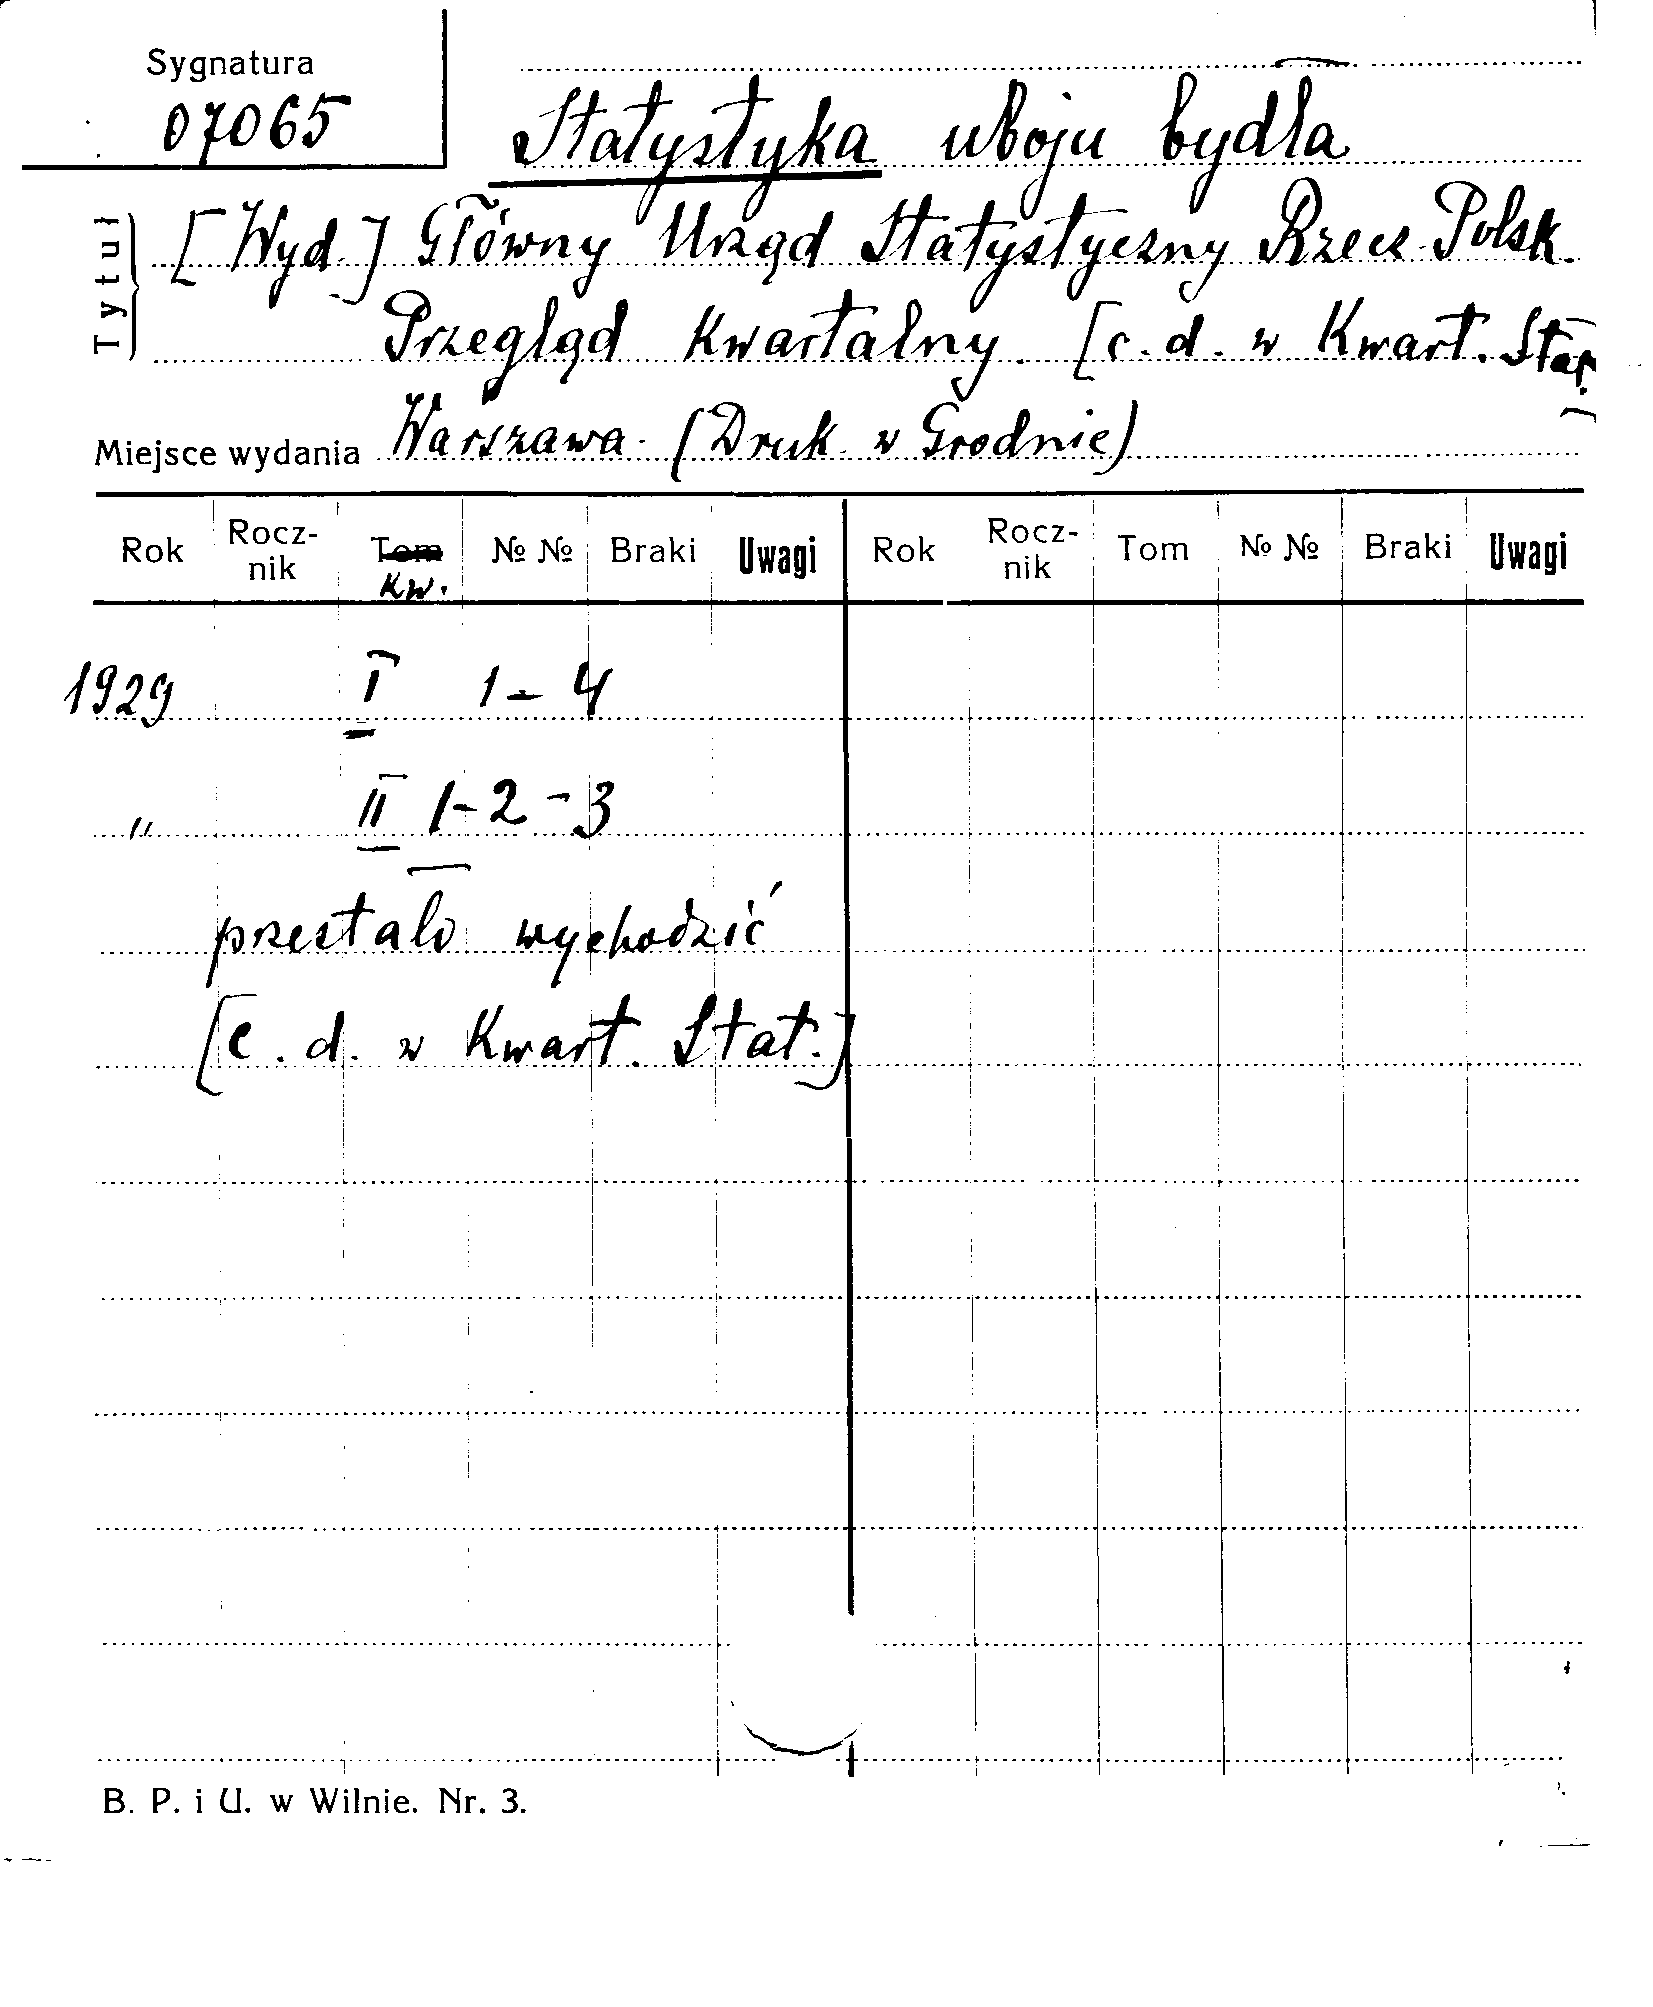 Sygnatura
07065
Statystyka uboju bydła
Tytuł
[Wyd.] Główny Urząd Statystyczny Rzecz. Polsk.
Przegląd kwartalny. [c. d. w Kwart. Stat.
Miejsce wydania Warszawa. (Druk. w Grodnie)
Rok Rocz-nik Tom Kw. №№ Braki Uwagi Rok Rocz-nik Tom №№ Braki Uwagi
1929 I 1-4
" II 1-2-3
przestało wychodzić
[c. d. w Kwart. Stat.]
B. P. i U. w Wilnie. Nr. 3.